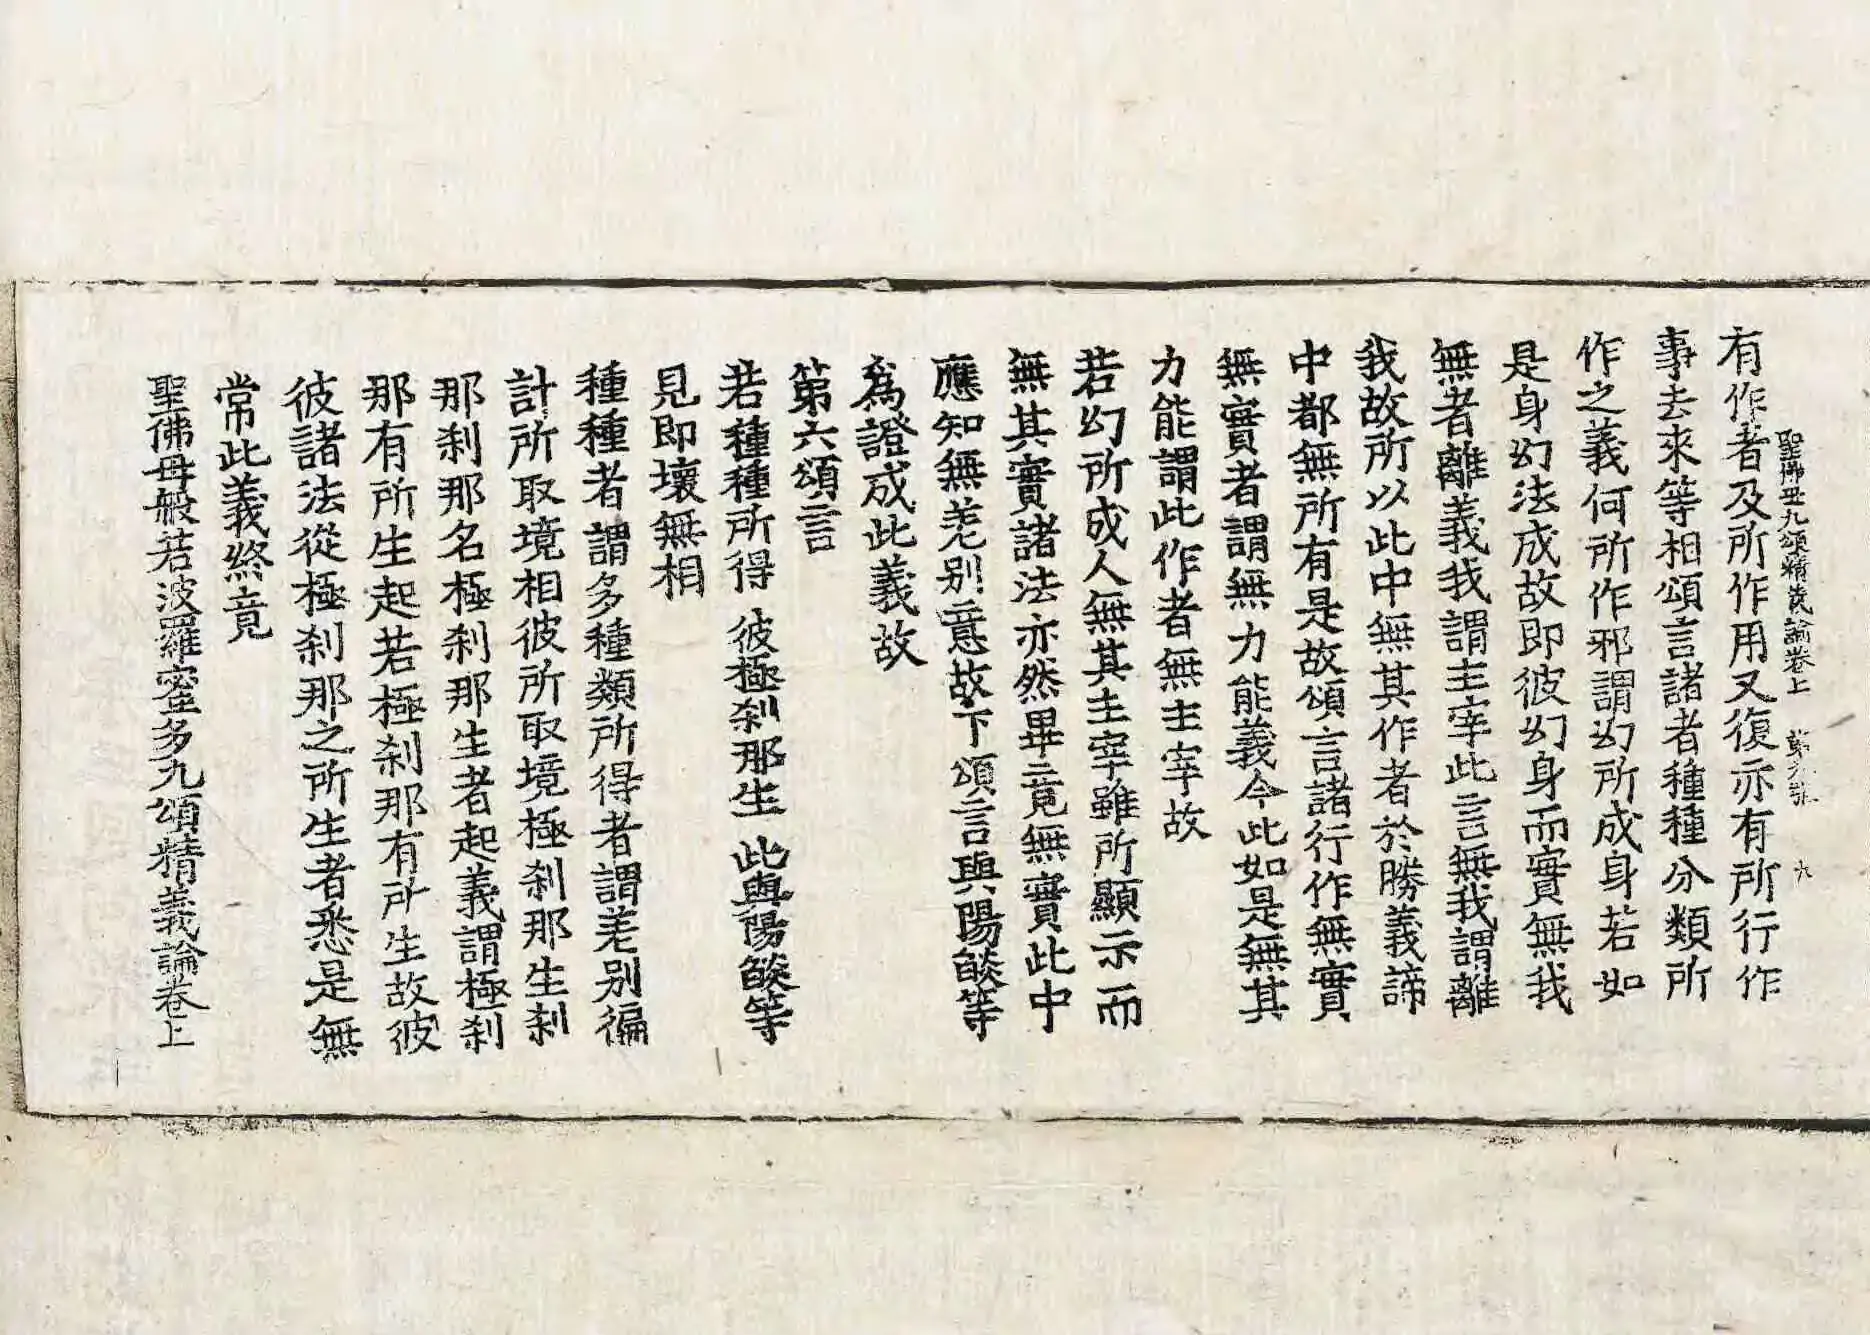 聖佛母九頌精義論卷上 第九張 九
有作者及所作用又復亦有所行作
事去來等相頌言諸者種種分類所
作之義何所作邪謂幻所成身若如
是身幻法成故即彼幻身而實無我
無者離義我謂主宰此言無我謂離
我故所以此中無其作者於勝義諦
中都無所有是故頌言諸行作無實
無實者謂無力能義今此如是無其
力能謂此作者無主宰故
若幻所成人無其主宰雖所顯示而
無其實諸法亦然畢竟無實此中
應知無差別意故下頌言與陽燄等
為證成此義故
第六頌言
若種種所得 彼極刹那生 此與陽燄等
見即壞無相
種種者謂多種類所得者謂差別徧
計所取境相彼所取境極刹那生刹
那刹那名極刹那生者起義謂極刹
那有所生起若極刹那有所生故彼
彼諸法從極刹那之所生者悉是無
常此義終竟
聖佛母般若波羅蜜多九頌精義論卷上